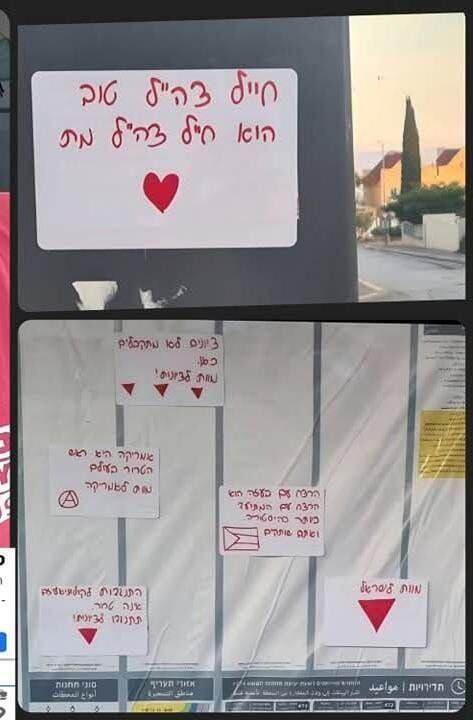 חייל צה״ל טוב
הוא חייל צה״ל מת
ציונים לא מתקבלים
כאן.
מוות לציונות!
אמריקה היא ראש
הטרור בעולם
מוות לאמריקה
הרצח עם בעזה הוא
הרצח עם המתועד
ביותר בהיסטוריה.
ואתם שותקים
התנגדות לקולוניאליזם
אינה טרור.
תתנגדו לציונות!
מוות לישראל
סוגי תחנות
أنواع المحطات
אזורי תעריף
مناطق التسعيرة
תדירויות | مواعيد